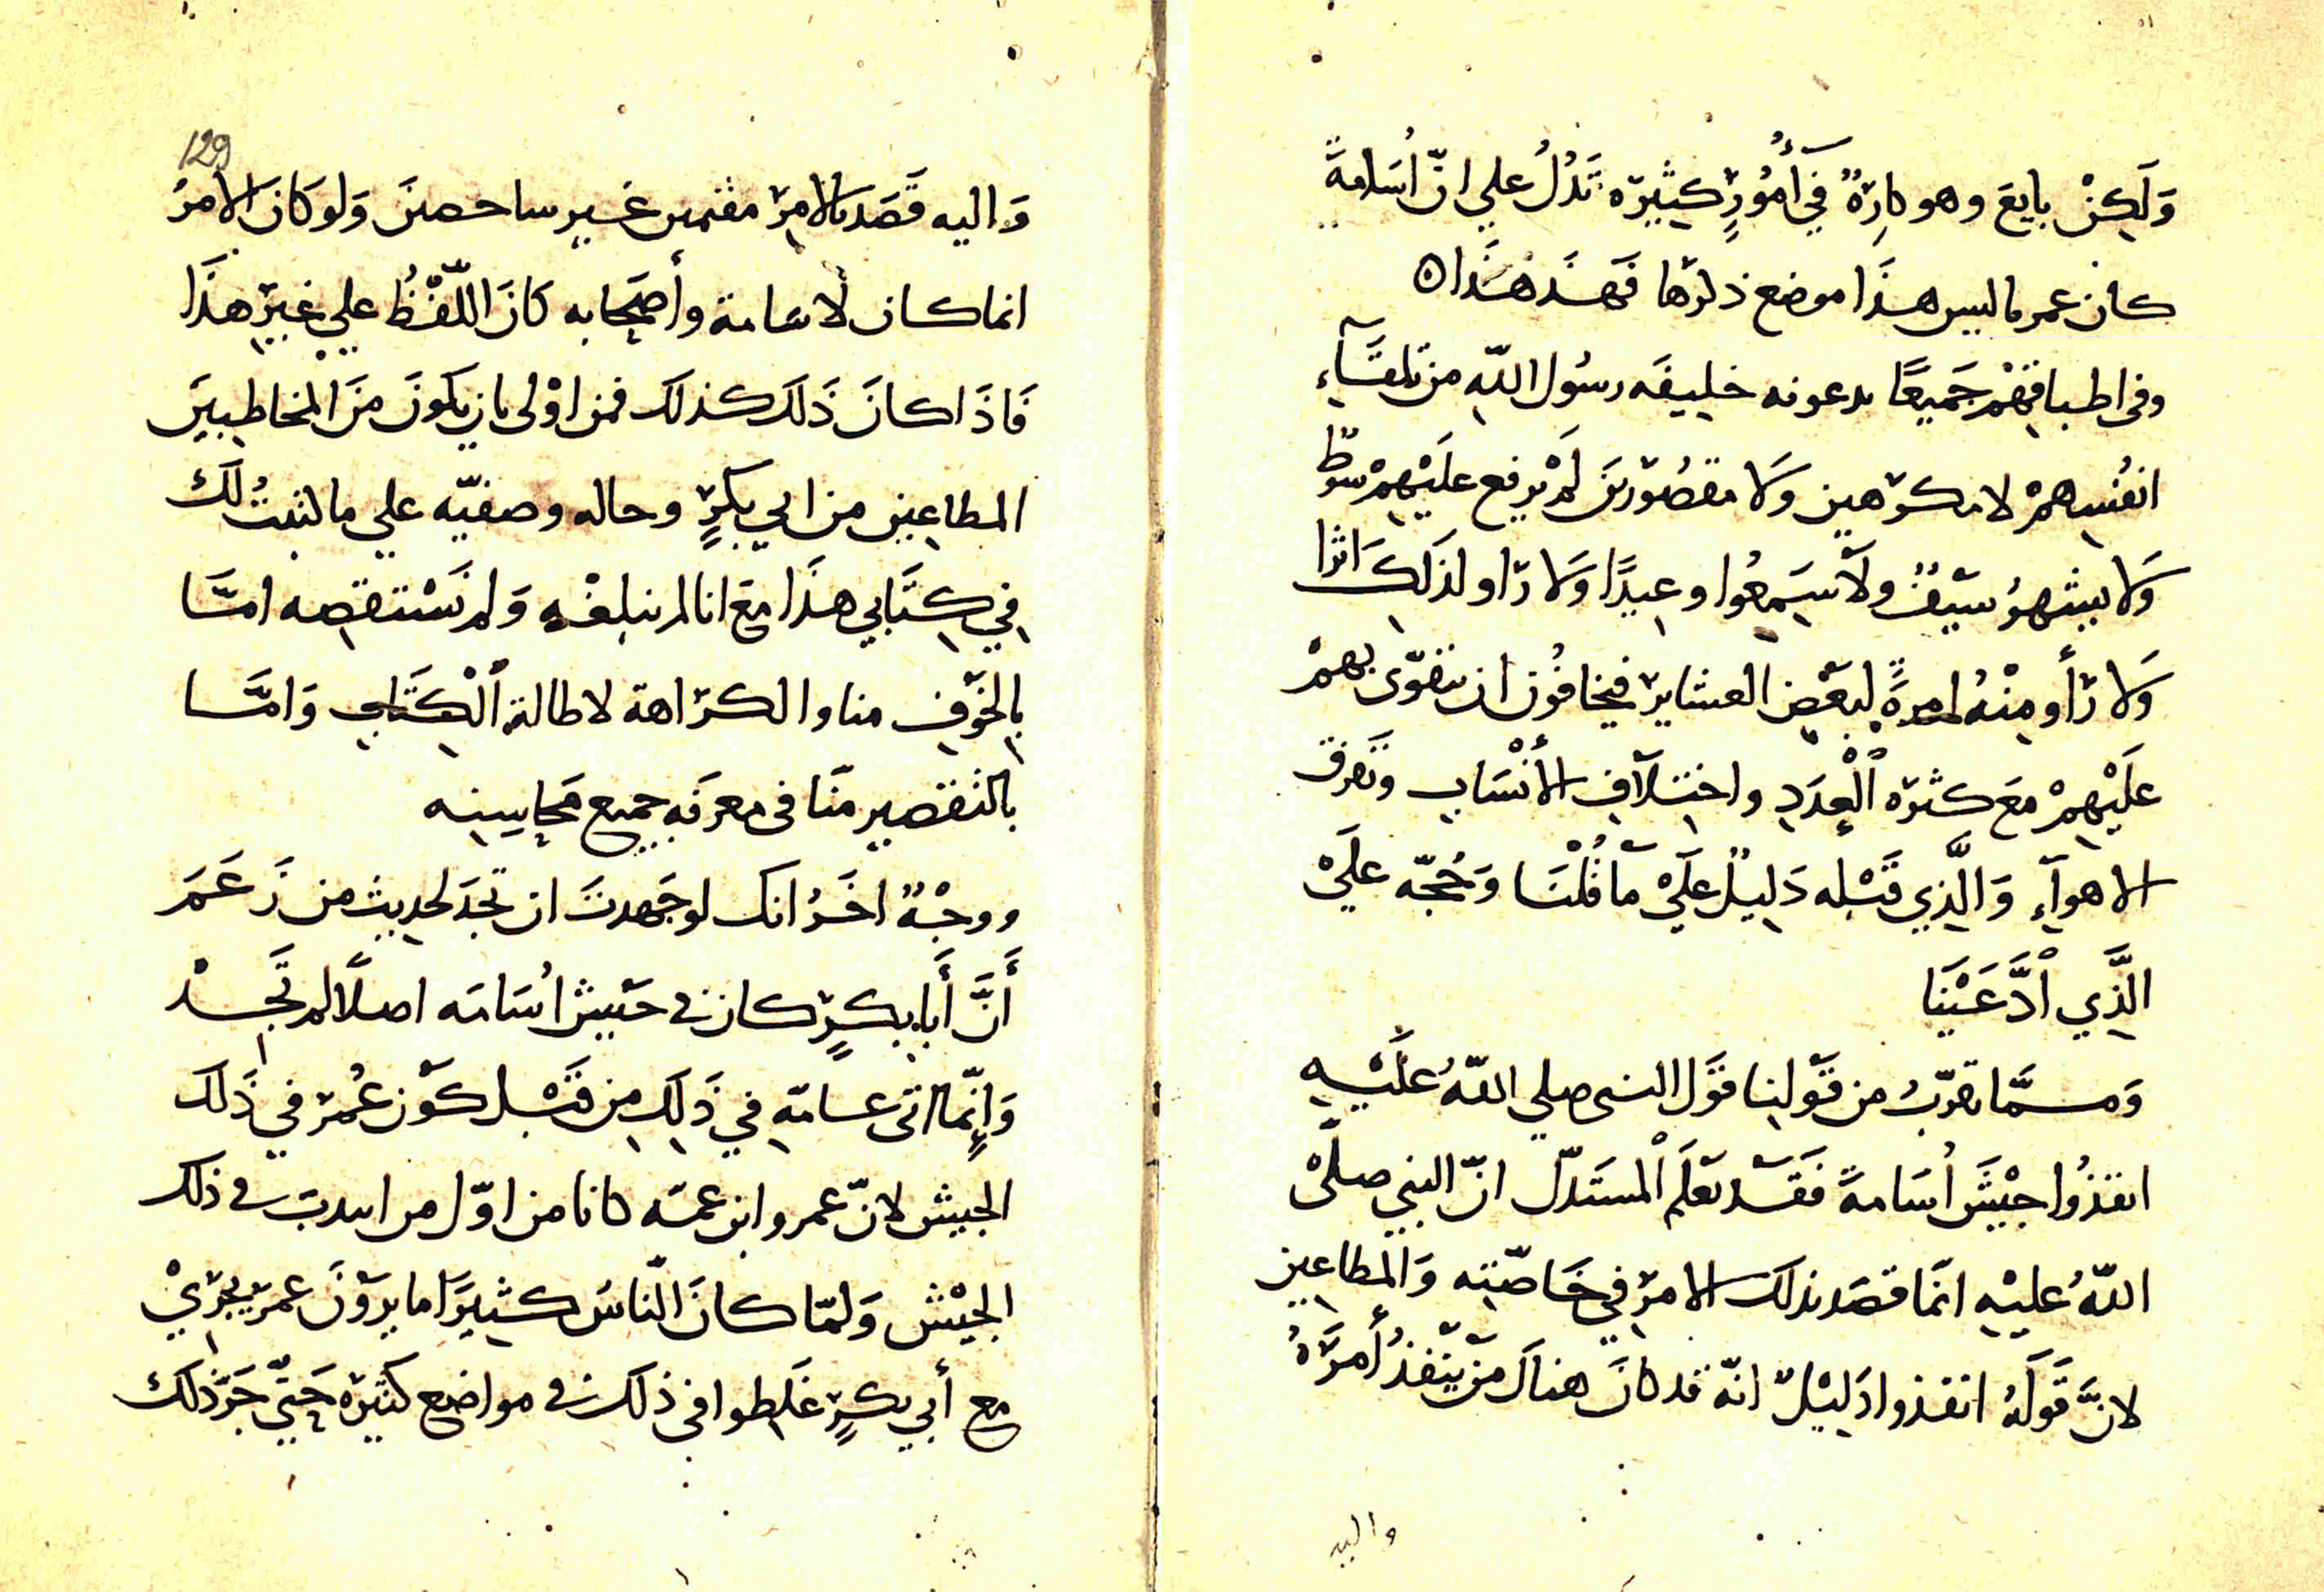 وَلَكِنْ بايعَ وهو كارِهٌ في أُمُورٍ كثيرَه تَدُلُ علي انّ أُسَامةً
كان عمر ما ليس هذا موضع ذكرها فهذا هذا ه
وفى اطباقهم جَميعًا يدعونه خليفَه رسُول اللّه من تلقآءِ
انفُسِهمْ لا مكرَهين وَلا مقصُورين لَمْ يرفع عليْهِمْ سَوْطٌ
وَلا يشهرُ سيفٌ ولا سَمِعُوا وعيدًا وَلا رَاو لذلك اثرا
وَلا رَأو مِنْهُ امرةً لبَعْضِ العشاير فيخافُون ان يتقوّى بهمْ
عليْهِمْ معَ كثرَه الْعَدَدِ واختلَافِ الأَنْسَابِ وتفرق
الاهوآءِ وَالَّذِي قَبْله دَلِيلٌ عَلَيْ مَا قُلْنَا وَحُجّه علَيْ
الَّذِي ادَّعَيْنَا
وَممَّا يقرّبُ من قَوْلنِا قوَل النبى صلي اللّهُ عَلَيْهِ
انفذُوا جيْشَ أُسَامةً فَقَد تعَلَم الْمستَدلّ انّ النبي صلَّى
اللّهُ عليْهِ انمَا قصَد بذلك الامرَ في خَاصّتِه وَالمطاعين
لانَّ قَوَلهُ انفذوا دَلِيْلٌ انّه قد كانَ هناكَ منْ يَنْفذُ أَمرَهُ
واليه
129
وَاليه قَصَد بالامرِ مقيمين غَير شاخصينَ وَلو كانَ الامرُ
انما كان لأسامة وأصحَابه كانَ اللّفْظُ علي غيرِ هذَا
فَاذَا كانَ ذَلكَ كذلك فمن اوْلى بان يكونَ منَ المخاطبينَ
المطاعين من ابي بكرٍ وحاله وصفته علي ما اثبتُ لك
في كِتَابي هذَا معَ انا لم نبلغْهِ وَلم نَسْتقصه امَّا
بالخوْفِ منا والكرَاهة لاطالة الْكِتَابِ وَامَّا
بالتقصيرِ منّا فى معرفَهِ جميع مَحاسِنِه
ووجْهٌ اخَرُ انك لو جَهدتَ ان تجدَ لحديث من زَعَمَ
أَنَّ أَبا بكرٍ كان في جَيش أُسَامَه اصلًا لم تَجدْ
وَإِنّما اتى عامّهِ في ذَلِكَ مِن قَبْل كَوْن عُمَر في ذَلك
الجيش لانّ عمر وابن عمّه كانا من اوّل من انتدبَ في ذلك
الجيْش وَلمّا كانَ النّاسُ كثيرًا ما يرَوْنَ عمرَ يجرِيْ
مع أبي بكرٍ غَلِطوا في ذلك في مواضع كثيرَه حَتّي جَرَّ ذلك